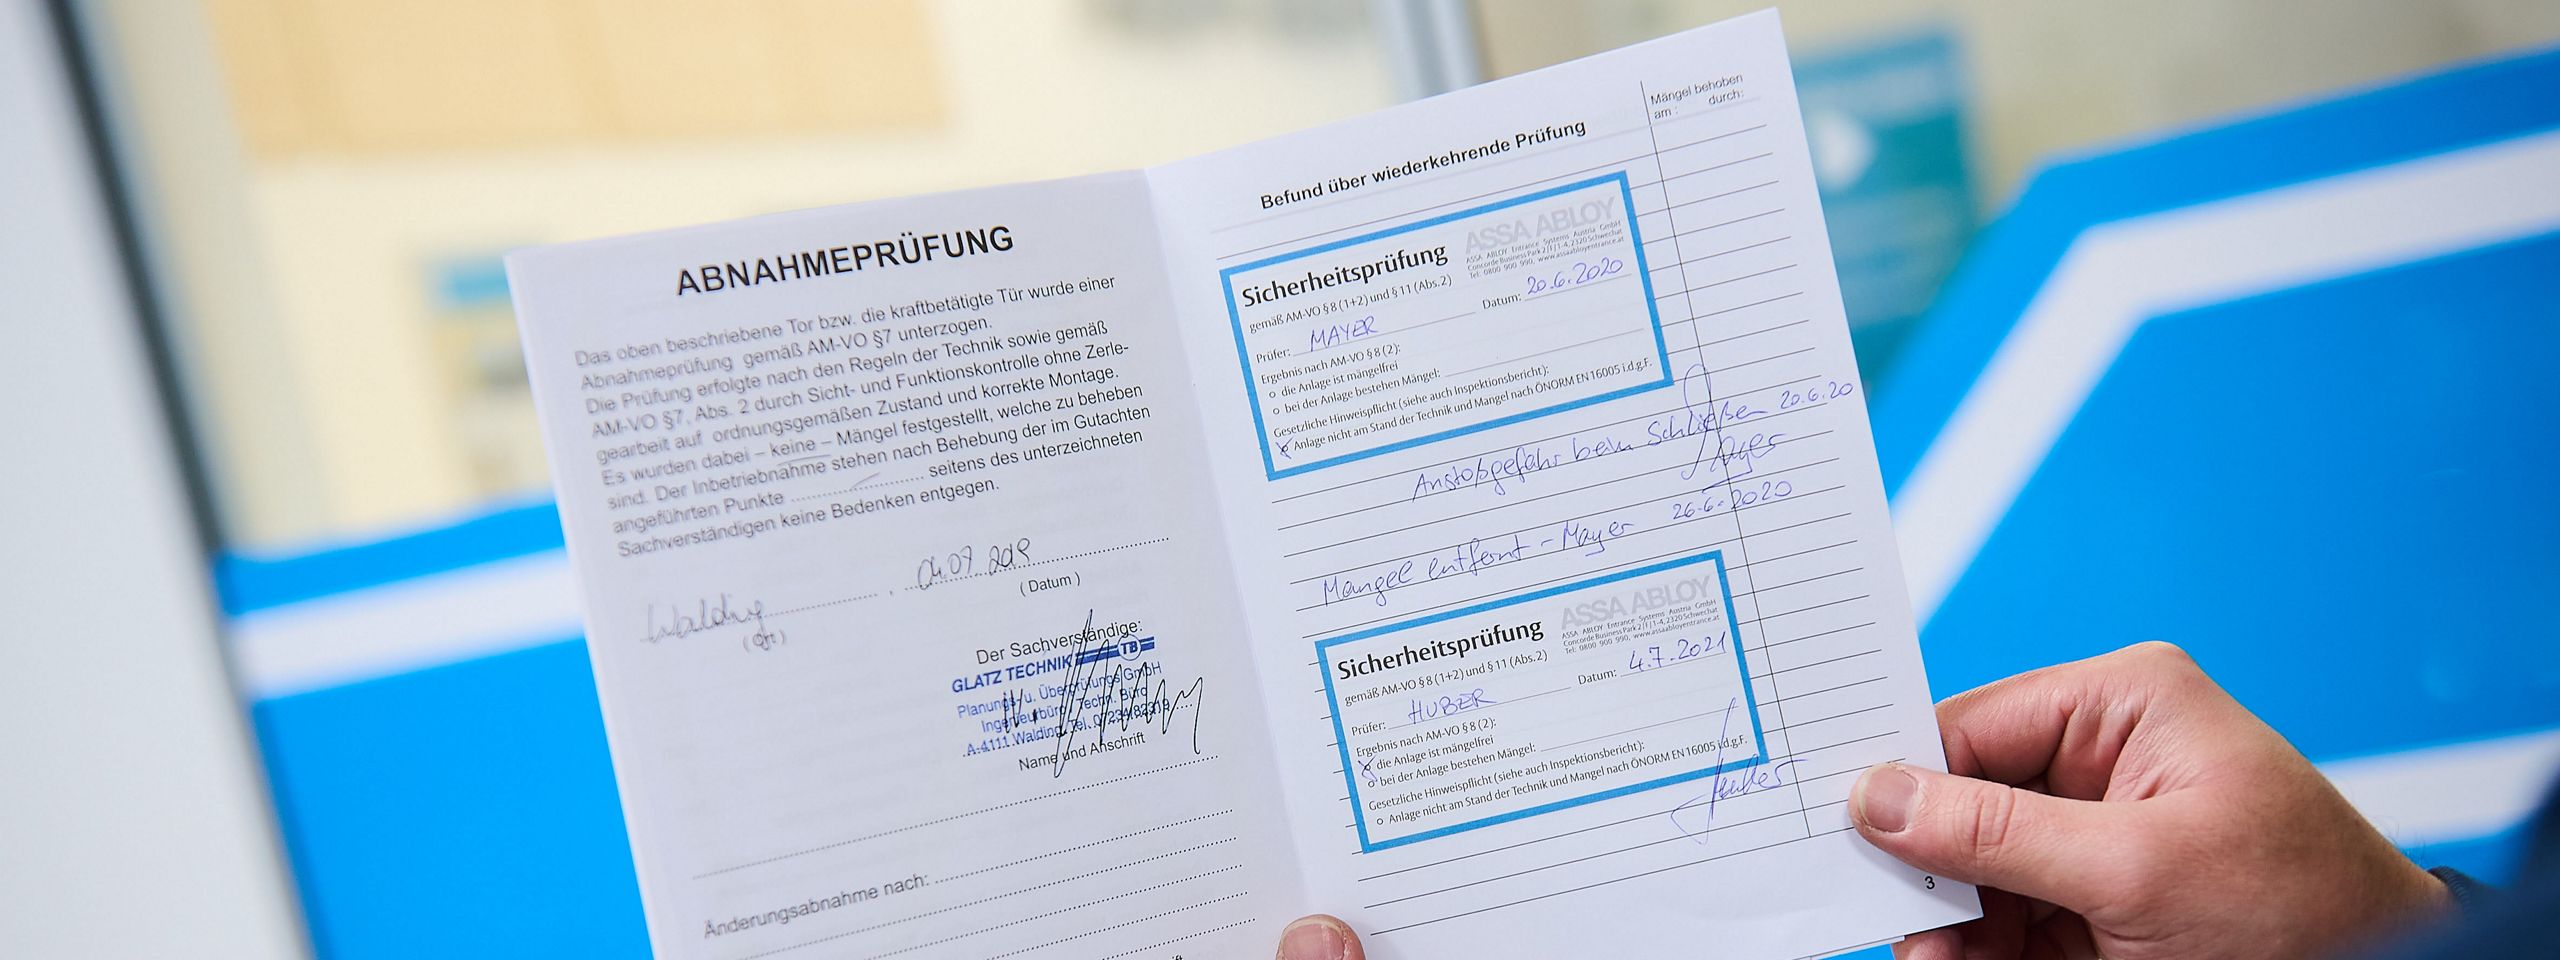 ABNAHMEPRÜFUNG
Das oben beschriebene Tor bzw. die kraftbetätigte Tür wurde einer
Abnahmeprüfung gemäß AM-VO §7 unterzogen.
Die Prüfung erfolgte nach den Regeln der Technik sowie gemäß
AM-VO §7, Abs. 2 durch Sicht- und Funktionskontrolle ohne Zerle-
gearbeit auf ordnungsgemäßen Zustand und korrekte Montage.
Es wurden dabei – keine – Mängel festgestellt, welche zu beheben
sind. Der Inbetriebnahme stehen nach Behebung der im Gutachten
angeführten Punkte .......................... seitens des unterzeichneten
Sachverständigen keine Bedenken entgegen.
Walding , 04.07.2019
(Ort) (Datum)
Der Sachverständige:
GLATZ TECHNIK TB
Planungs- u. Überprüfungs GmbH
Ingenieurbüro / Techn. Büro
A-4111 Walding, Tel. 07234/82319
Name und Anschrift
Änderungsabnahme nach:
Befund über wiederkehrende Prüfung
Mängel behoben
am : durch:
Sicherheitsprüfung
ASSA ABLOY
ASSA ABLOY Entrance Systems Austria GmbH
Concorde Business Park 2 | F | 1-4, 2320 Schwechat
Tel: 0800 900 990, www.assaabloyentrance.at
gemäß AM-VO § 8 (1+2) und § 11 (Abs.2)
Prüfer: MAYER Datum: 20.6.2020
Ergebnis nach AM-VO § 8 (2):
o die Anlage ist mängelfrei
o bei der Anlage bestehen Mängel:
Gesetzliche Hinweispflicht (siehe auch Inspektionsbericht):
x Anlage nicht am Stand der Technik und Mangel nach ÖNORM EN 16005 i.d.g.F.
Anstoßgefahr beim Schließen 20.6.20
Mayer
Mangel entfernt - Mayer 26.6.2020
Sicherheitsprüfung
ASSA ABLOY
ASSA ABLOY Entrance Systems Austria GmbH
Concorde Business Park 2 | F | 1-4, 2320 Schwechat
Tel: 0800 900 990, www.assaabloyentrance.at
gemäß AM-VO § 8 (1+2) und § 11 (Abs.2)
Prüfer: HUBER Datum: 4.7.2021
Ergebnis nach AM-VO § 8 (2):
x die Anlage ist mängelfrei
o bei der Anlage bestehen Mängel:
Gesetzliche Hinweispflicht (siehe auch Inspektionsbericht):
o Anlage nicht am Stand der Technik und Mangel nach ÖNORM EN 16005 i.d.g.F.
Huber
3